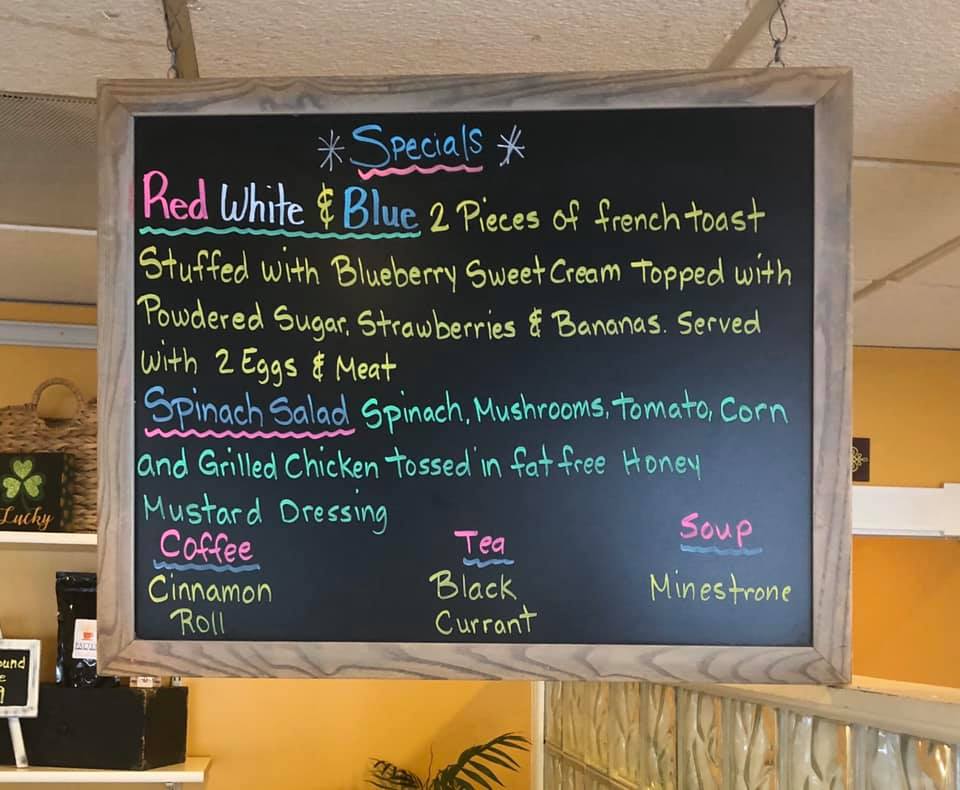 * Specials *
Red White & Blue 2 Pieces of french toast
Stuffed with Blueberry Sweet Cream Topped with
Powdered Sugar, Strawberries & Bananas. Served
with 2 Eggs & Meat
Spinach Salad Spinach, Mushrooms, Tomato, Corn
and Grilled Chicken Tossed in fat free Honey
Mustard Dressing
Coffee Tea Soup
Cinnamon Black Minestrone
Roll Currant
Lucky